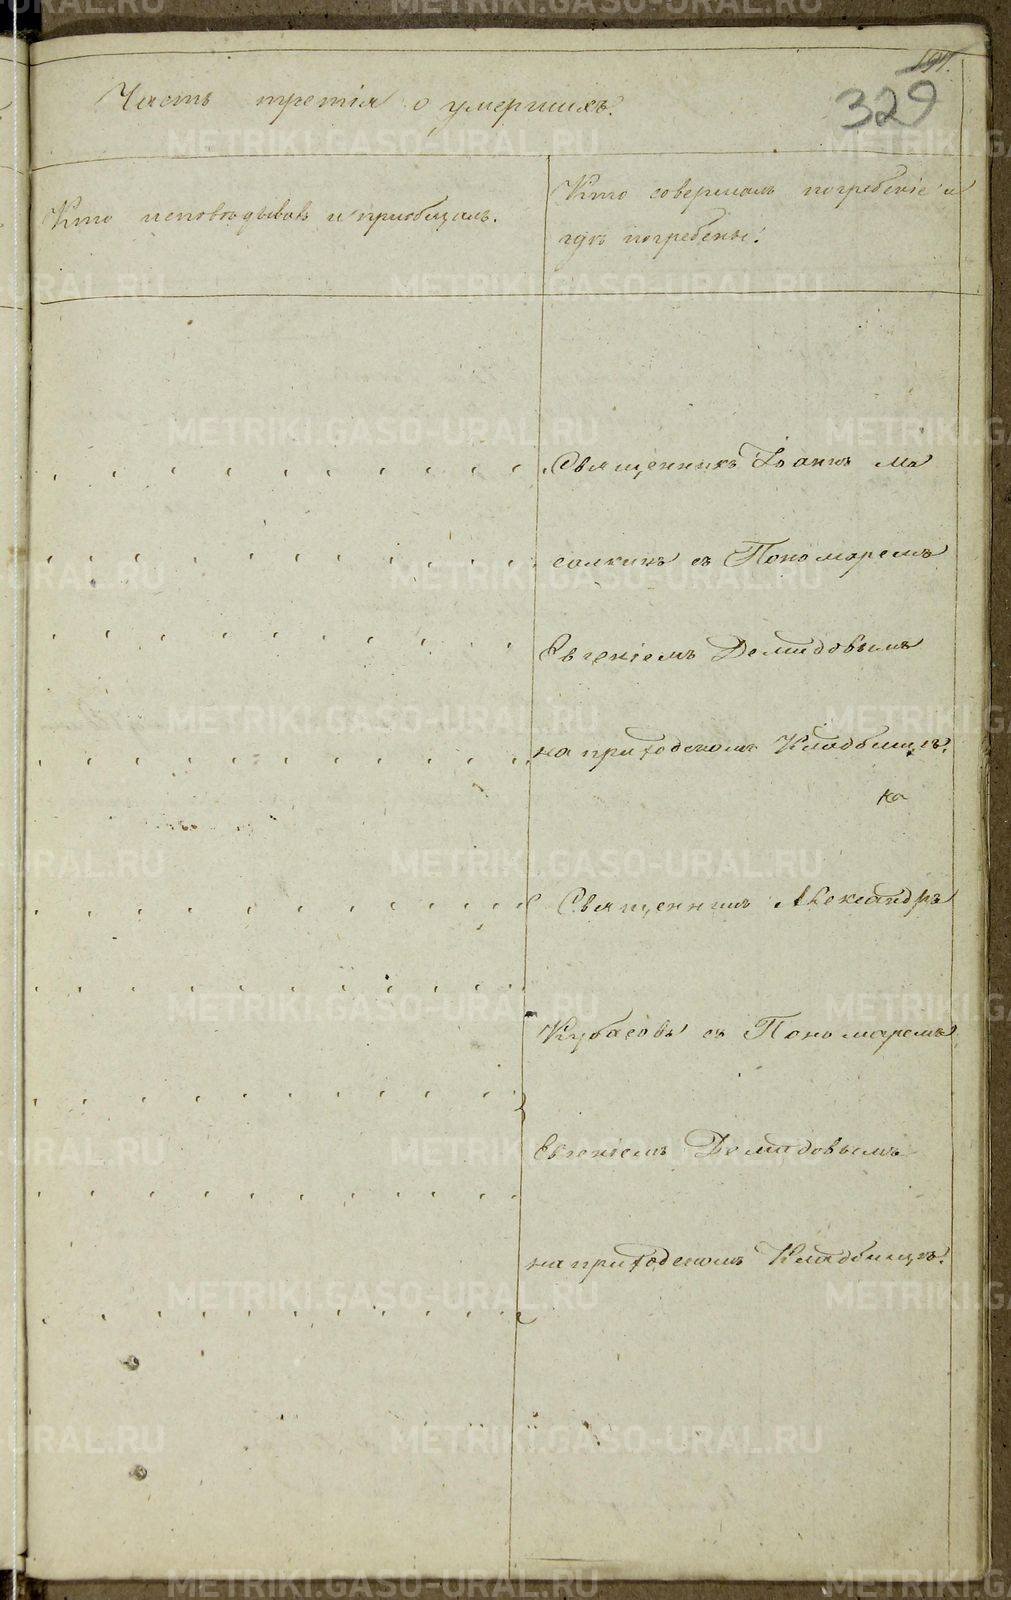 197.
329
Часть третія о умершихъ.
Кто исповѣдывалъ и приобщалъ.
Кто совершалъ погребеніе и
гдѣ погребены.
Священникъ Іоаннъ Ма
салкинъ съ Пономаремъ
Евгеніемъ Демидовымъ
на приходскомъ Кладбищѣ.
ка
Священникъ Александръ
Кубасовъ съ Пономаремъ
Евгеніемъ Демидовымъ
на приходскомъ Кладбищѣ.
METRIKI.GASO-URAL.RU